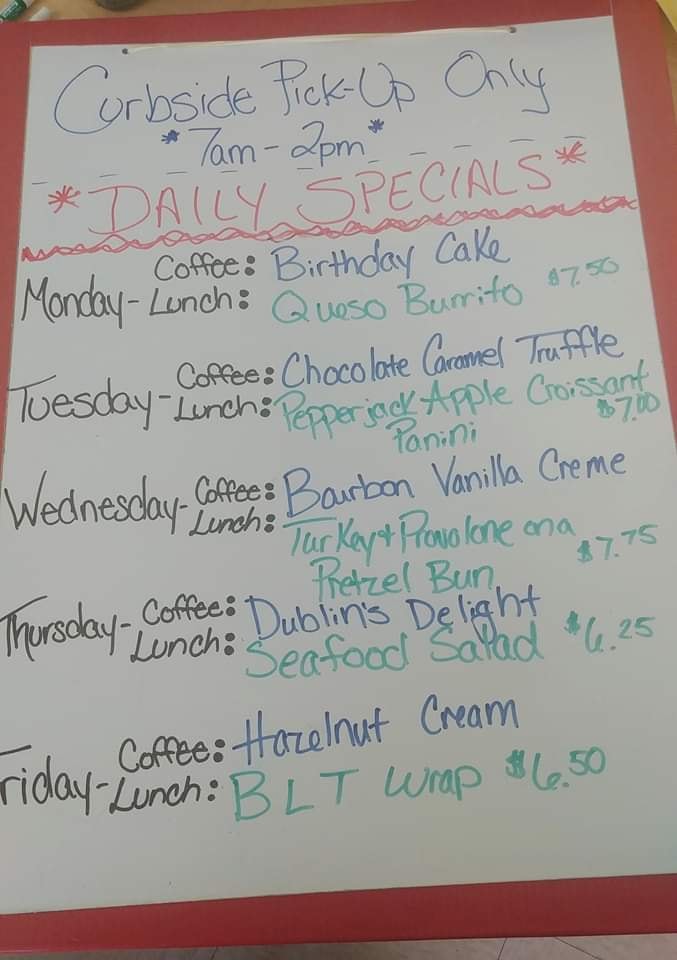 Curbside Pick-Up Only
*7am - 2pm*
*DAILY SPECIALS*
Monday - Coffee: Birthday Cake
Lunch: Queso Burrito $7.50
Tuesday - Coffee: Chocolate Caramel Truffle
Lunch: Pepperjack Apple Croissant
Panini $7.00
Wednesday - Coffee: Bourbon Vanilla Creme
Lunch: Turkey + Provolone on a
Pretzel Bun $7.75
Thursday - Coffee: Dublin's Delight
Lunch: Seafood Salad $6.25
Friday - Coffee: Hazelnut Cream
Lunch: BLT Wrap $6.50